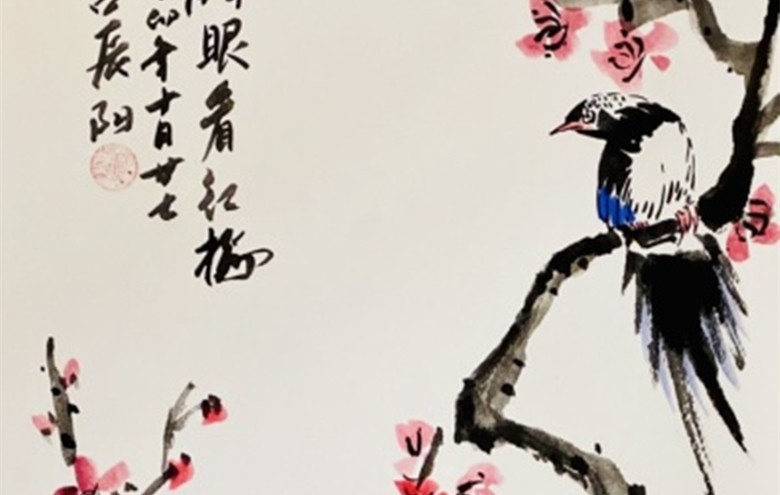 眼看红梅
卯年十月廿七
辰阳